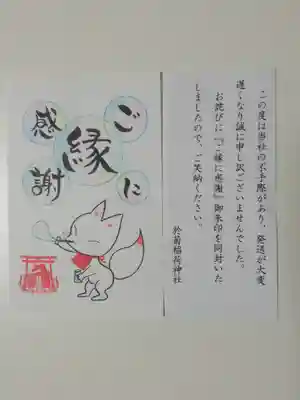 ご縁に
感謝
この度は当社の不手際があり、発送が大変
遅くなり誠に申し訳ございませんでした。
お詫びに『ご縁に感謝』御朱印を同封いた
しましたので、ご笑納ください。
於菊稲荷神社